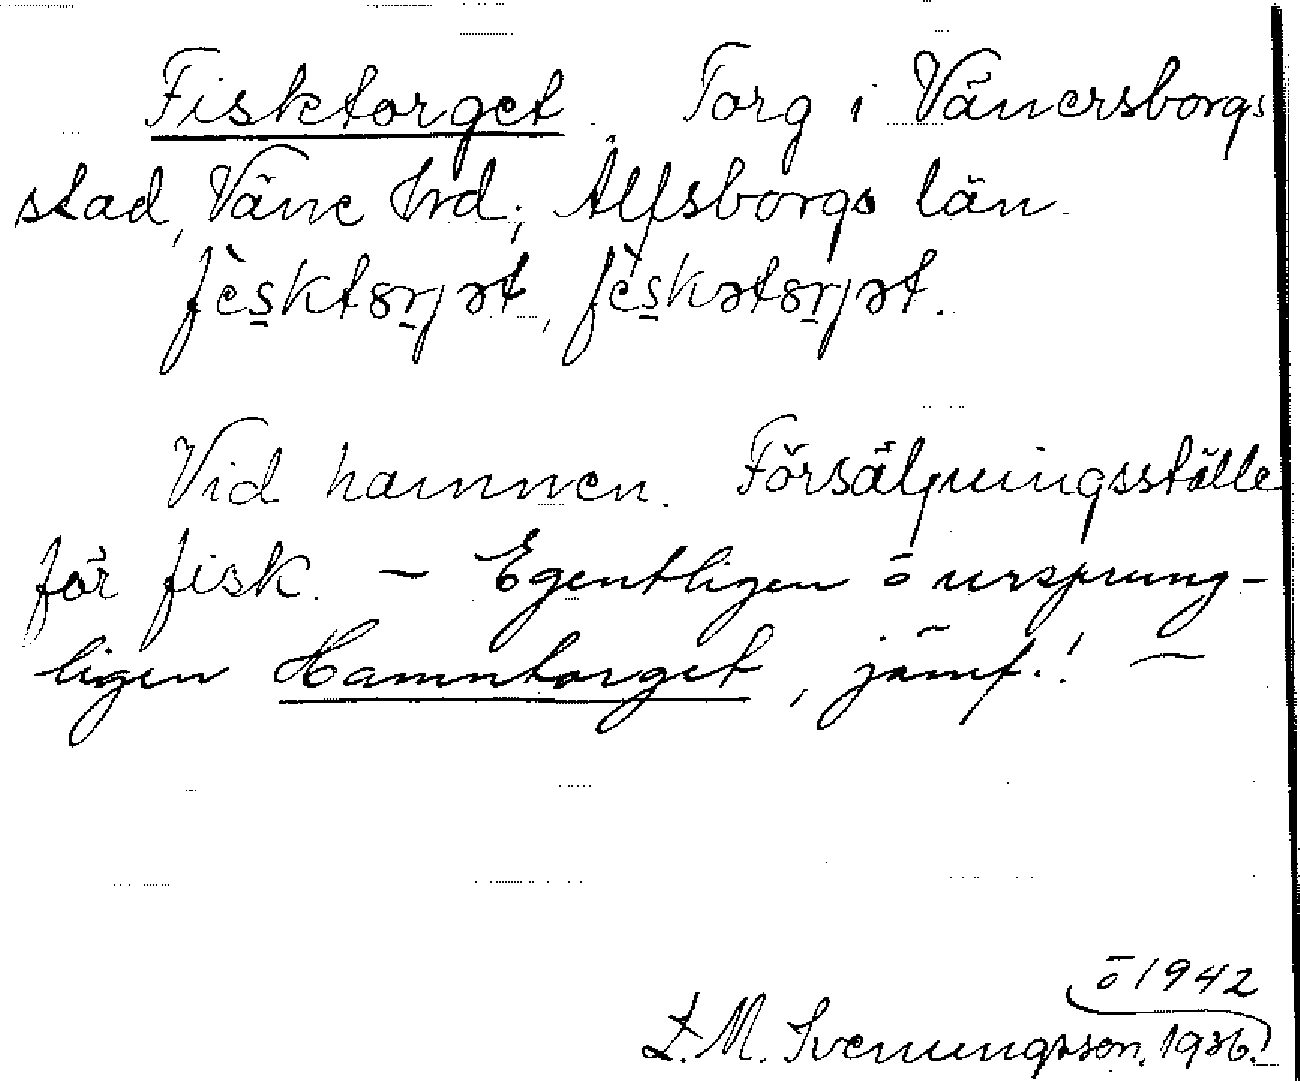 Fisktorget. Torg i Vänersborgs
stad, Väne hrd; Älfsborgs län.
Vid hamnen. Försäljningsställe
för fisk. – Egentligen o ursprung-
ligen Hamntorget, jämf.! –
o 1942
L. M. Svenungsson. 1936.